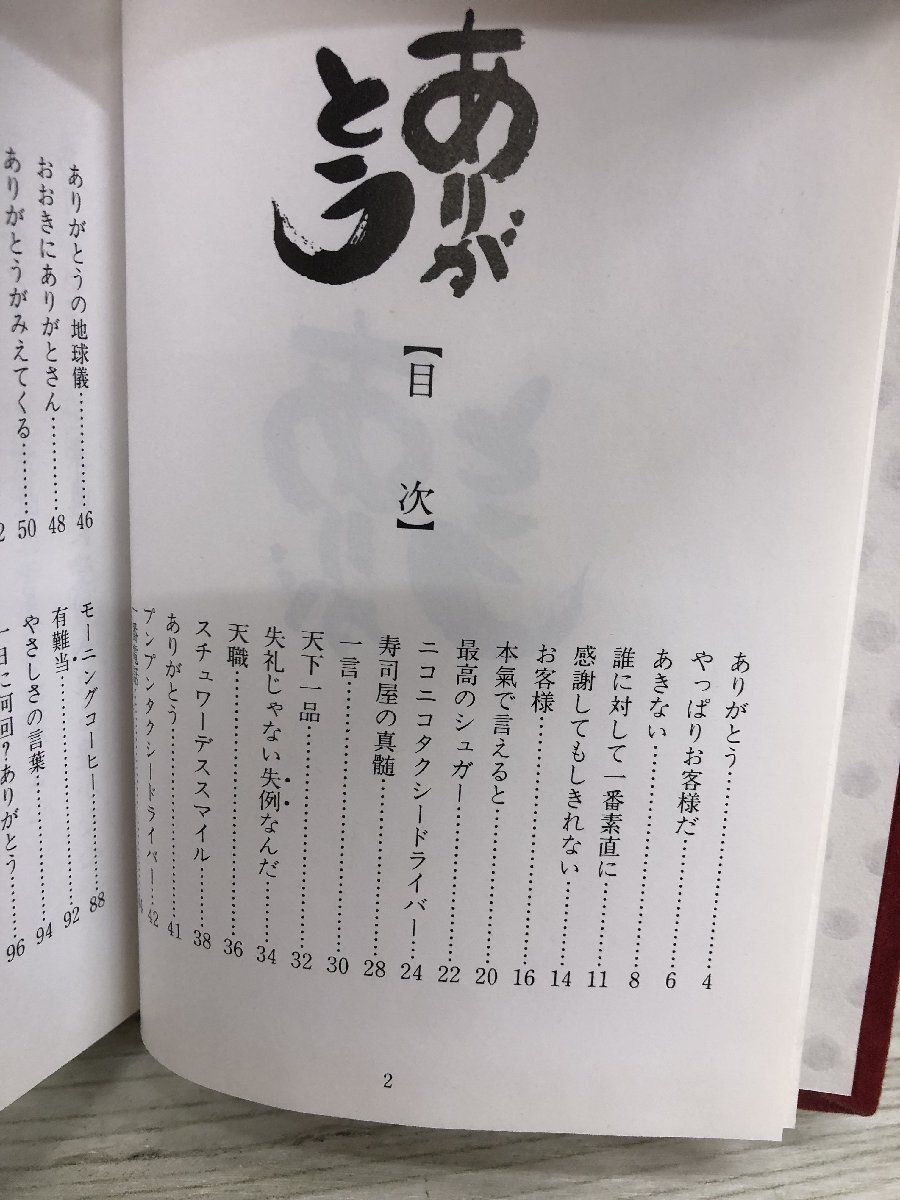 ありが
とう
【目 次】
ありがとう……………………4
やっぱりお客様だ……………6
あきない………………………8
誰に対して一番素直に………11
感謝してもしきれない………14
お客様…………………………16
本氣で言えると………………20
最高のシュガー………………22
ニコニコタクシードライバー…24
寿司屋の真髄…………………28
一言……………………………30
天下一品………………………32
失礼じゃない失例なんだ……34
天職……………………………36
スチュワーデススマイル……38
ありがとう……………………41
プンプンタクシードライバー…42
2
ありがとうの地球儀…………46
おおきにありがとさん………48
ありがとうがみえてくる……50
モーニングコーヒー…………88
有難当…………………………92
やさしさの言葉………………94
一日に何回?ありがとう……96